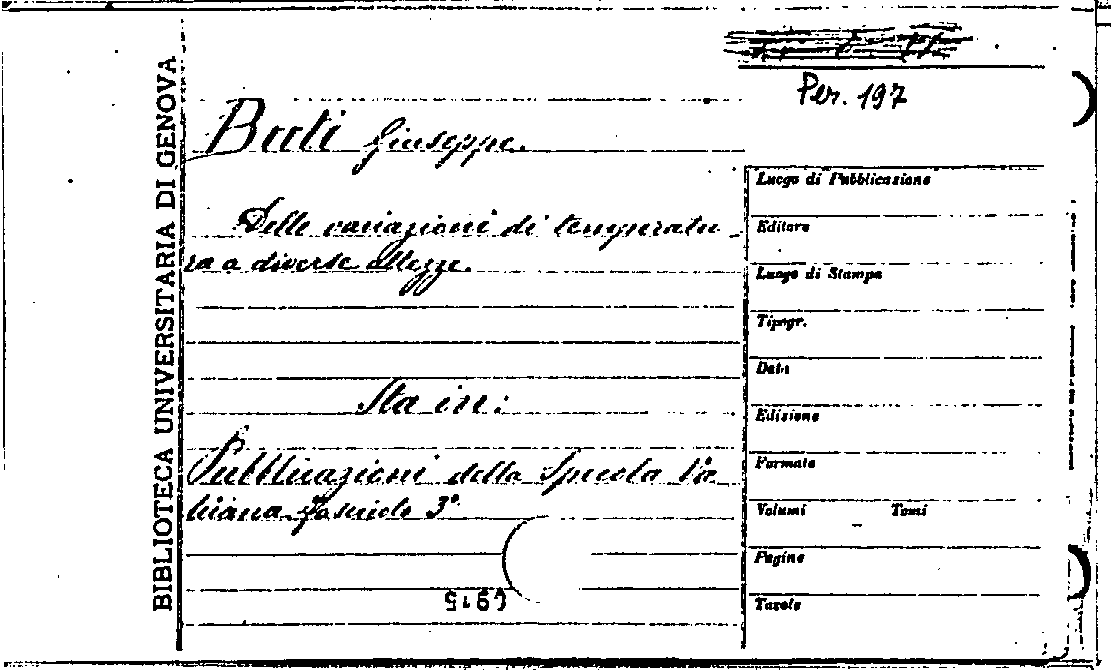 BIBLIOTECA UNIVERSITARIA DI GENOVA
Per. 197
Buti Giuseppe.
Delle variazioni di temperatu-
ra a diverse altezze.
Sta in:
Pubblicazioni della Specola Va
ticana. Fascicolo 3°
Luogo di Pubblicazione
Editore
Luogo di Stampa
Tipogr.
Data
Edizione
Formato
Volumi Tomi
Pagine
Tavole